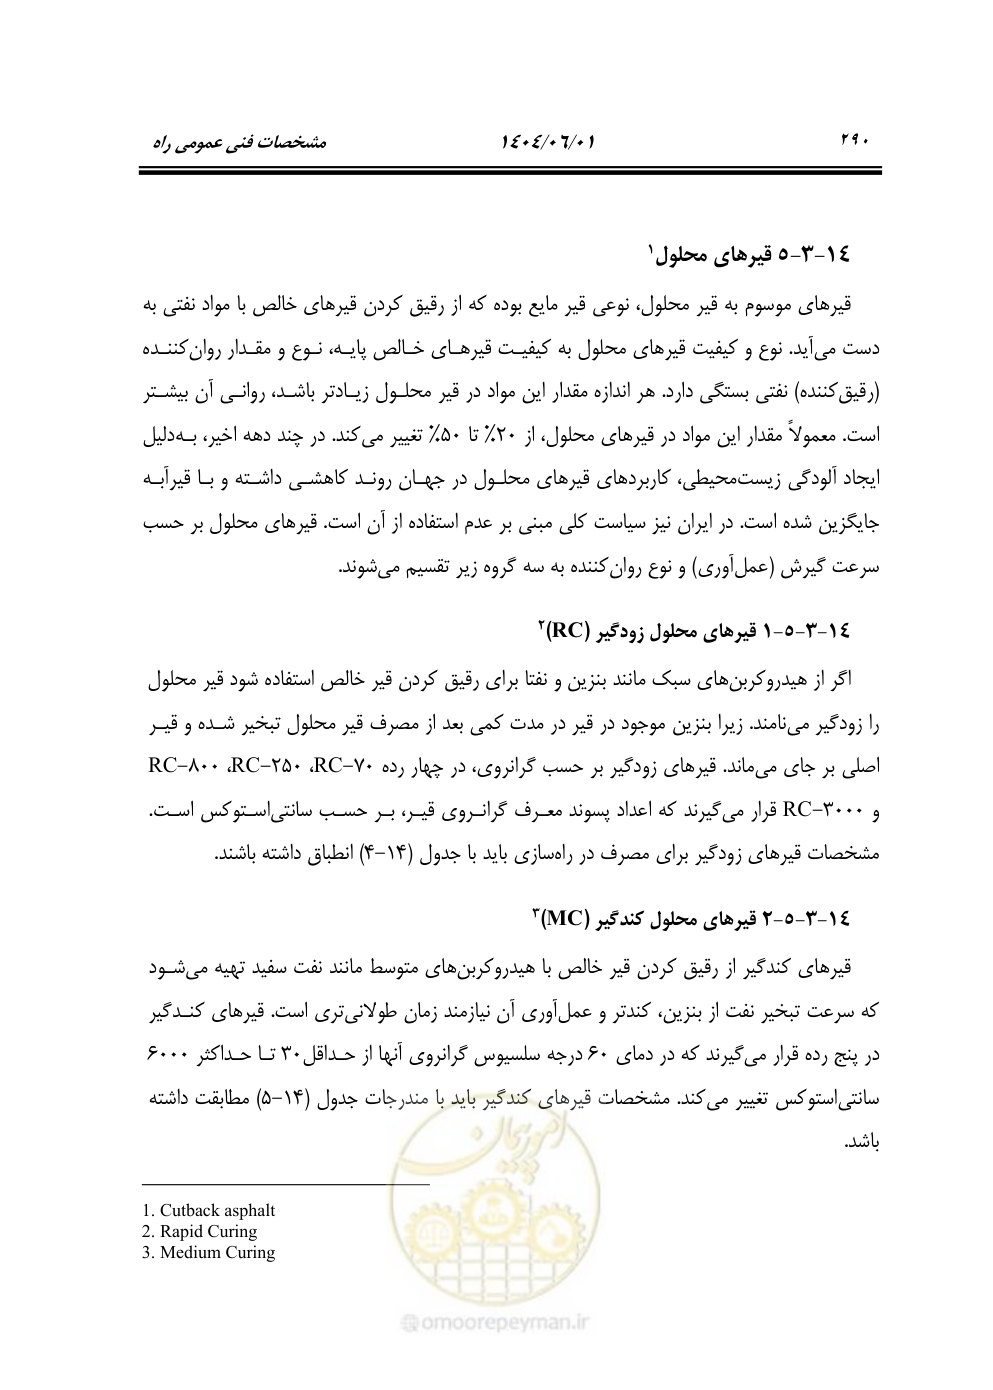 ۲۹۰ ۱۴۰۴/۰۶/۰۱ مشخصات فنی عمومی راه
۱۴-۳-۵ قیرهای محلول۱
قیرهای موسوم به قیر محلول، نوعی قیر مایع بوده که از رقیق کردن قیرهای خالص با مواد نفتی به
دست می‌آید. نوع و کیفیت قیرهای محلول به کیفیت قیرهای خالص پایه، نوع و مقدار روان‌کننده
(رقیق‌کننده) نفتی بستگی دارد. هر اندازه مقدار این مواد در قیر محلول زیادتر باشد، روانی آن بیشتر
است. معمولاً مقدار این مواد در قیرهای محلول، از ۲۰٪ تا ۵۰٪ تغییر می‌کند. در چند دهه اخیر، به‌دلیل
ایجاد آلودگی زیست‌محیطی، کاربردهای قیرهای محلول در جهان روند کاهشی داشته و با قیرآبه
جایگزین شده است. در ایران نیز سیاست کلی مبنی بر عدم استفاده از آن است. قیرهای محلول بر حسب
سرعت گیرش (عمل‌آوری) و نوع روان‌کننده به سه گروه زیر تقسیم می‌شوند.
۱۴-۳-۵-۱ قیرهای محلول زودگیر (RC)۲
اگر از هیدروکربن‌های سبک مانند بنزین و نفتا برای رقیق کردن قیر خالص استفاده شود قیر محلول
را زودگیر می‌نامند. زیرا بنزین موجود در قیر در مدت کمی بعد از مصرف قیر محلول تبخیر شده و قیر
اصلی بر جای می‌ماند. قیرهای زودگیر بر حسب گرانروی، در چهار رده RC-۷۰، RC-۲۵۰، RC-۸۰۰
و RC-۳۰۰۰ قرار می‌گیرند که اعداد پسوند معرف گرانروی قیر، بر حسب سانتی‌استوکس است.
مشخصات قیرهای زودگیر برای مصرف در راه‌سازی باید با جدول (۱۴-۴) انطباق داشته باشند.
۱۴-۳-۵-۲ قیرهای محلول کندگیر (MC)۳
قیرهای کندگیر از رقیق کردن قیر خالص با هیدروکربن‌های متوسط مانند نفت سفید تهیه می‌شود
که سرعت تبخیر نفت از بنزین، کندتر و عمل‌آوری آن نیازمند زمان طولانی‌تری است. قیرهای کندگیر
در پنج رده قرار می‌گیرند که در دمای ۶۰ درجه سلسیوس گرانروی آنها از حداقل۳۰ تا حداکثر ۶۰۰۰
سانتی‌استوکس تغییر می‌کند. مشخصات قیرهای کندگیر باید با مندرجات جدول (۱۴-۵) مطابقت داشته
باشد.
1. Cutback asphalt
2. Rapid Curing
3. Medium Curing
امور پیمان
@omoorepeyman.ir